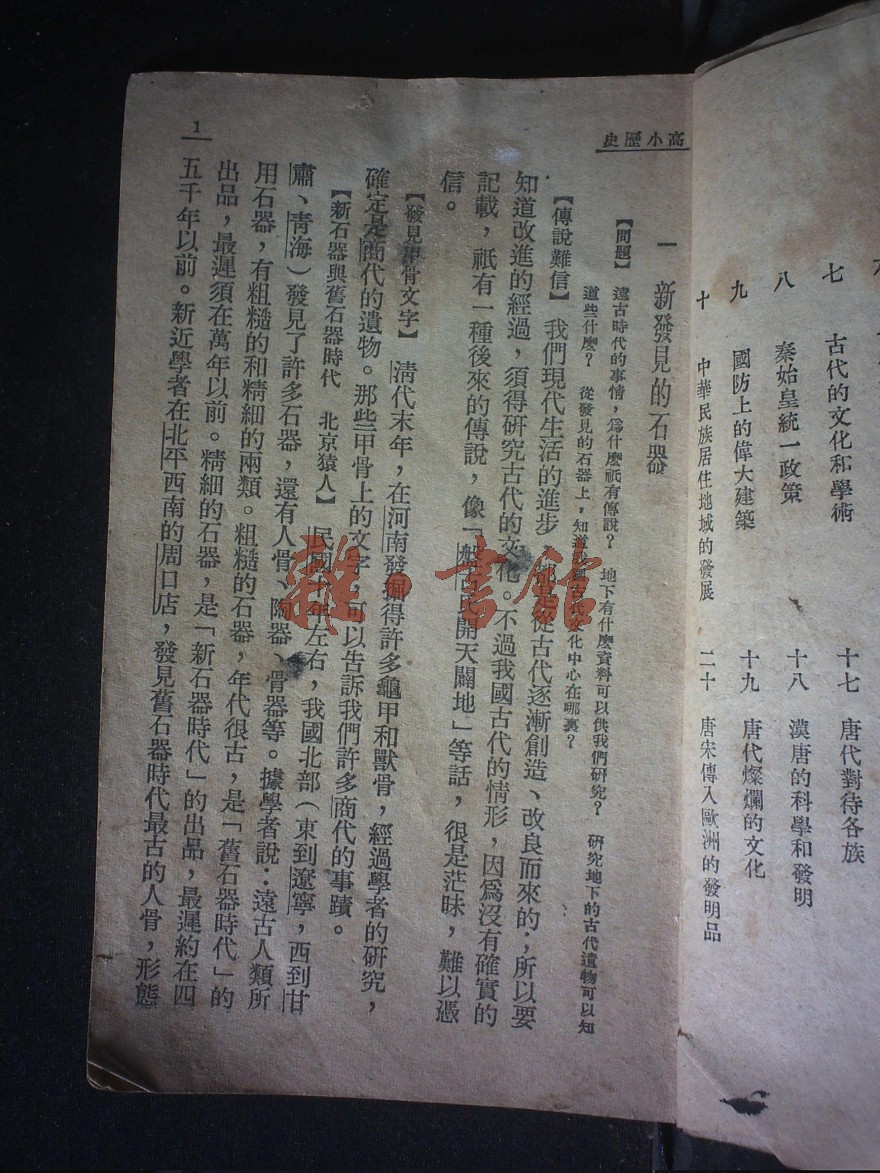 七　古代的文化和學術
八　秦始皇統一政策
九　國防上的偉大建築
十　中華民族居住地域的發展
十七　唐代對待各族
十八　漢唐的科學和發明
十九　唐代燦爛的文化
二十　唐宋傳入歐洲的發明品
高小歷史
一　新發見的石器
【問題】　遠古時代的事情，爲什麼祇有傳說？　地下有什麼資料可以供我們研究？　研究地下的古代遺物可以知
道些什麼？　從發見的石器上，知道我國古代文化中心在哪裏？
【傳說難信】　我們現代生活的進步　都是從古代逐漸創造、改良而來的；所以要
知道改進的經過，須得研究古代的文化。不過我國古代的情形，因爲沒有確實的
記載，祇有一種後來的傳說，像「盤古氏開天闢地」等話，很是茫昧，難以憑
信。
【發見甲骨文字】　清代末年，在河南發掘得許多龜甲和獸骨，經過學者的研究，
確定是商代的遺物。那些甲骨上的文字　可以告訴我們許多商代的事蹟。
【新石器與舊石器時代　北京猿人】　民國十年左右，我國北部（東到遼寧，西到甘
肅、青海）發見了許多石器，還有人骨、陶器、骨器等。據學者說：遠古人類所
用石器，有粗糙的和精細的兩類。粗糙的石器，年代很古，是「舊石器時代」的
出品，最遲須在萬年以前。精細的石器，是「新石器時代」的出品，最遲約在四
五千年以前。新近學者在北平西南的周口店，發見舊石器時代最古的人骨，形態
1
雜·書館